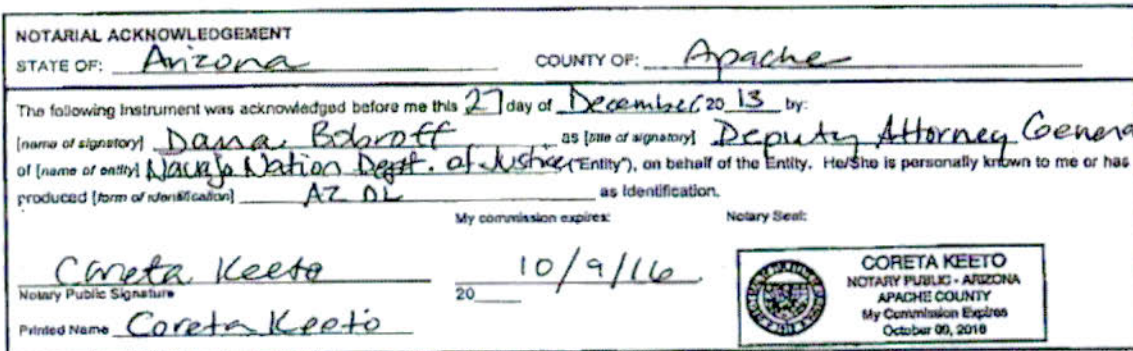 NOTARIAL ACKNOWLEDGEMENT
STATE OF: Arizona COUNTY OF: Apache
The following Instrument was acknowledged before me this 27 day of December 20 13 by:
[name of signatory] Dana Bobroff as [title of signatory] Deputy Attorney Genera
of [name of entity] Navajo Nation Dept. of Justice ("Entity"), on behalf of the Entity. He/She is personally known to me or has
produced [form of identification] AZ DL as Identification.
My commission expires: Notary Seal:
Coreta Keeto 10/9/16
Notary Public Signature 20
Printed Name Coreta Keeto
CORETA KEETO
NOTARY PUBLIC - ARIZONA
APACHE COUNTY
My Commission Expires
October 09, 2016